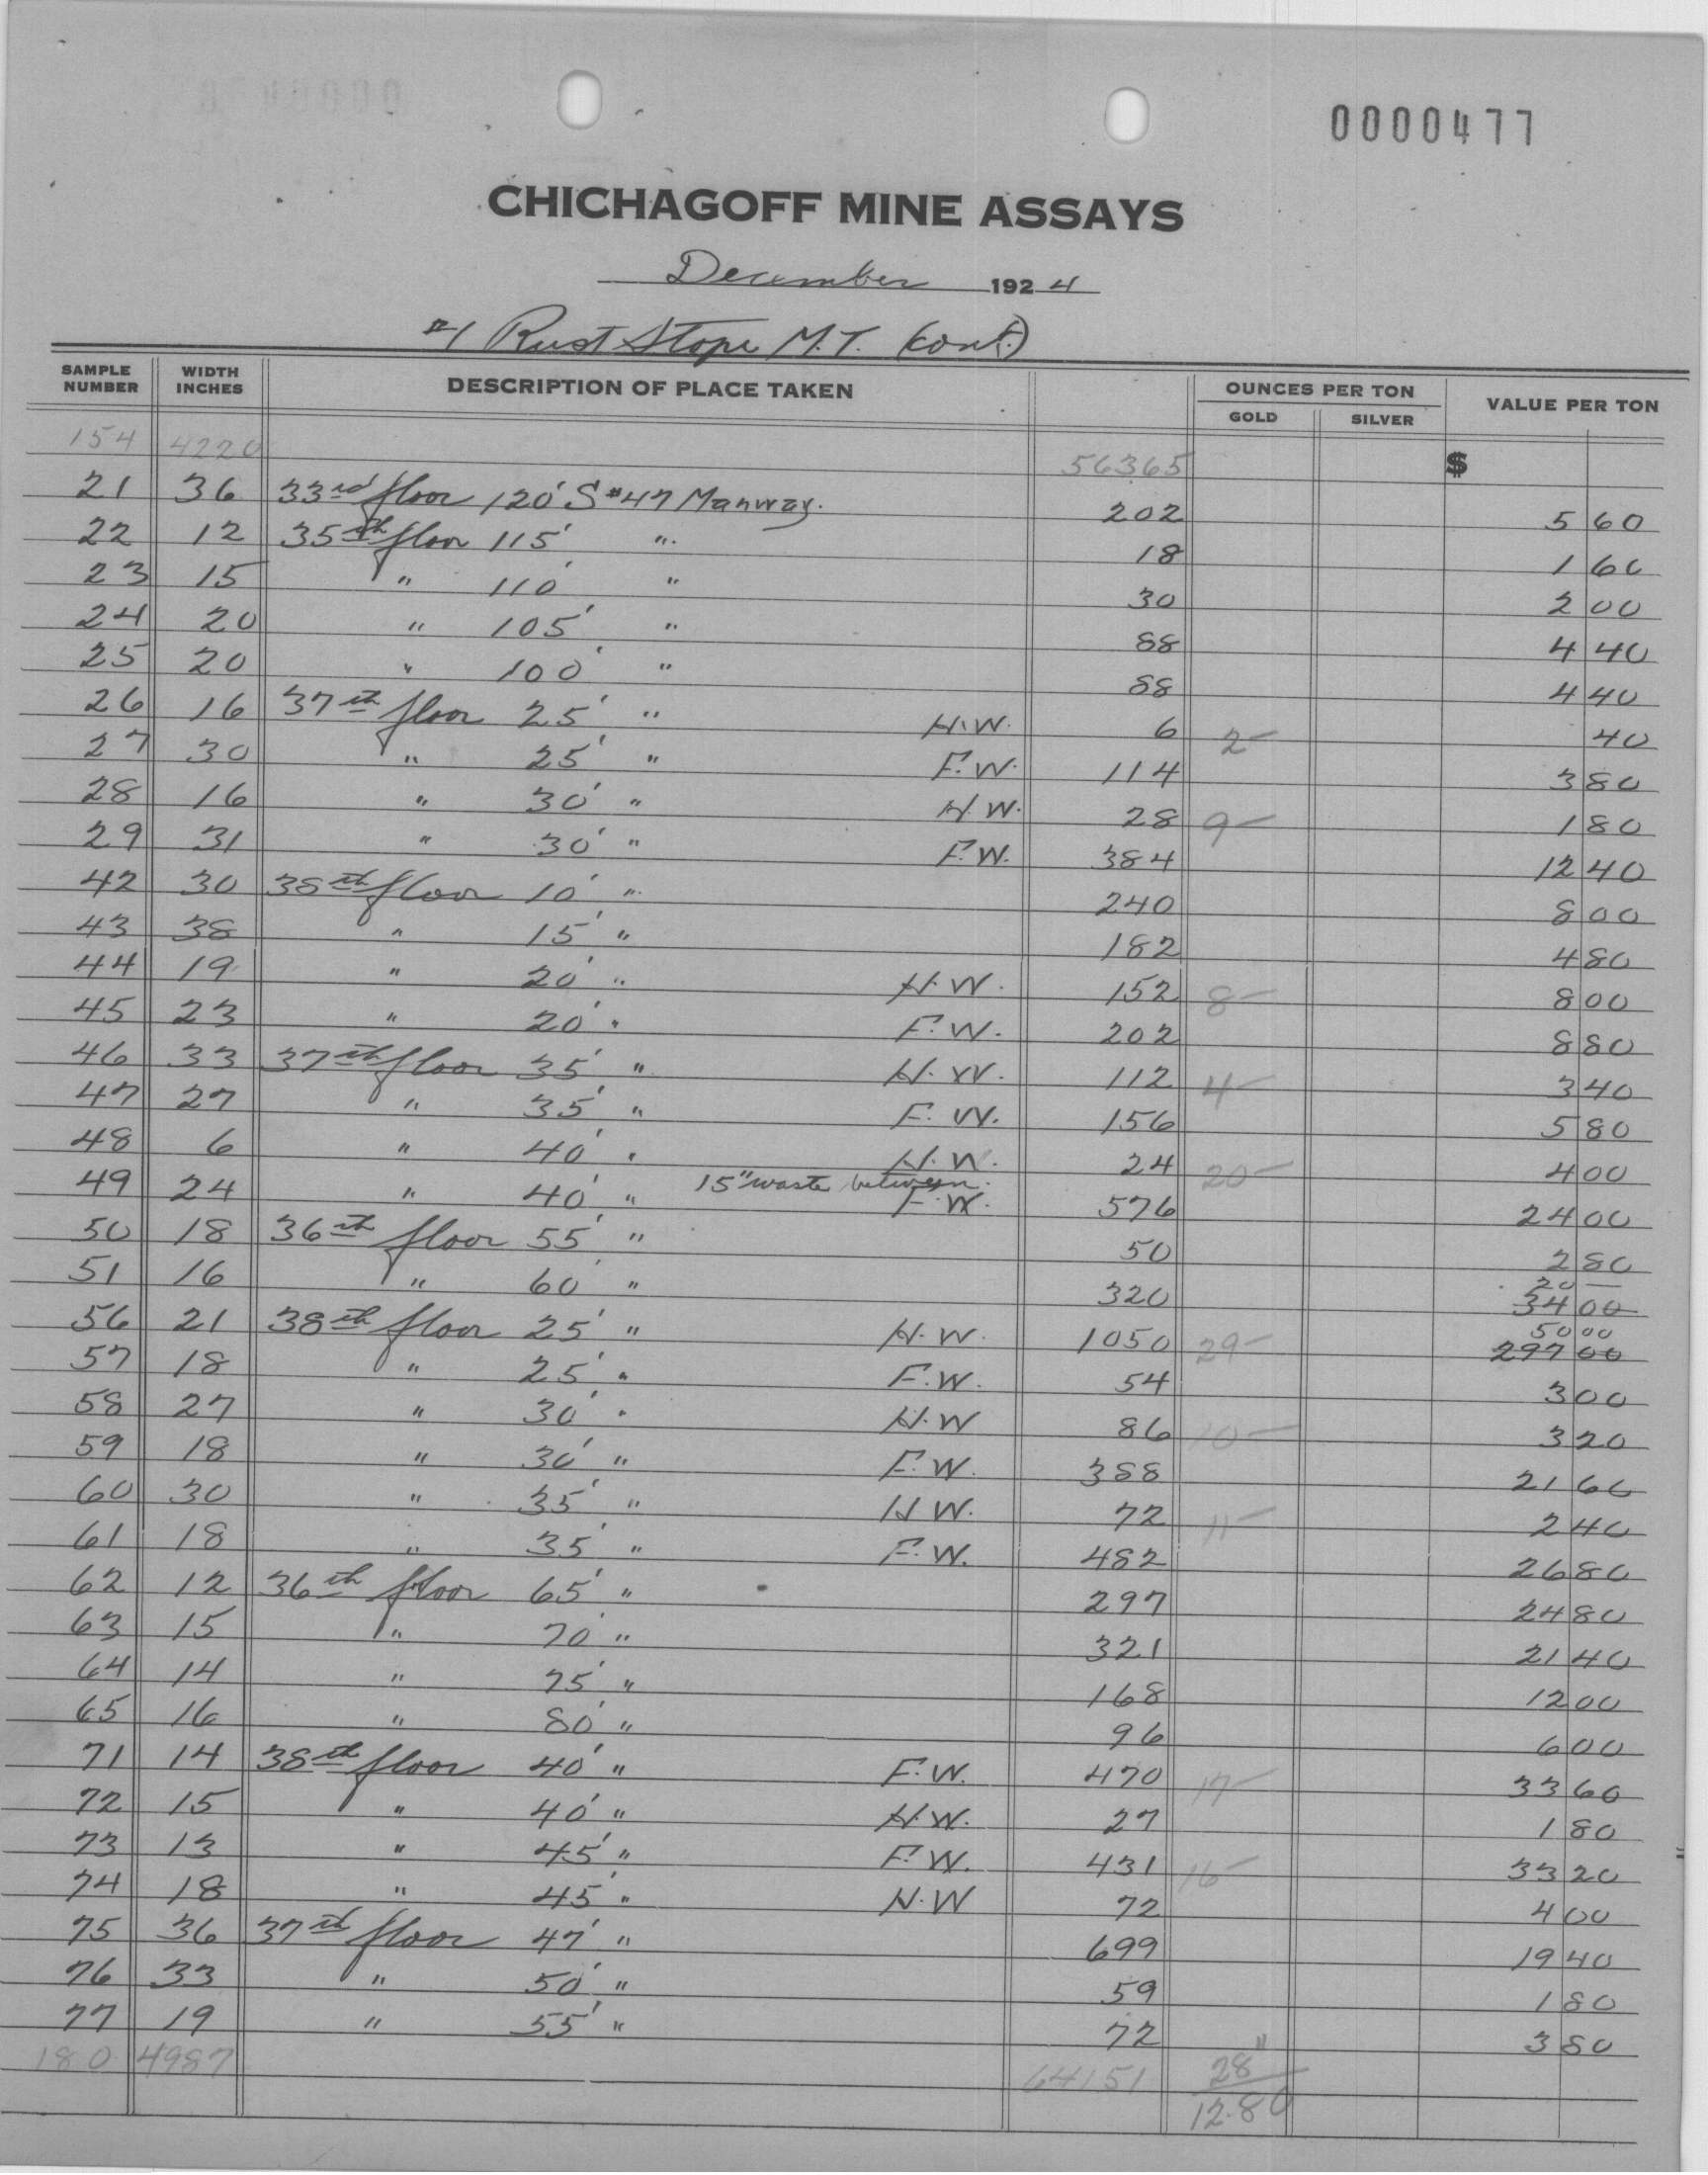 0000477
CHICHAGOFF MINE ASSAYS
December 1924
#1 Rust Stope M.T. (cont.)
SAMPLE NUMBER WIDTH INCHES DESCRIPTION OF PLACE TAKEN OUNCES PER TON GOLD SILVER VALUE PER TON
154 4220 56365 $
21 36 33rd floor 120' S #47 Manway. 202 5 60
22 12 35th floor 115' " 18 1 60
23 15 " 110' " 30 2 00
24 20 " 105' " 88 4 40
25 20 " 100' " 88 4 40
26 16 37th floor 25' " H.W. 6 2- 40
27 30 " 25' " F.W. 114 3 80
28 16 " 30' " H.W. 28 9- 1 80
29 31 " 30' " F.W. 384 12 40
42 30 38th floor 10' " 240 8 00
43 38 " 15' " 182 4 80
44 19 " 20' " H.W. 152 8- 8 00
45 23 " 20' " F.W. 202 8 80
46 33 37th floor 35' " H.W. 112 4- 3 40
47 27 " 35' " F.W. 156 5 80
48 6 " 40' " H.W. 24 20- 4 00
49 24 " 40' " 15" waste between. F.W. 576 24 00
50 18 36th floor 55' " 50 2 80
51 16 " 60' " 320 20 — 34 00
56 21 38th floor 25' " H.W. 1050 29- 50 00 297 00
57 18 " 25' " F.W. 54 3 00
58 27 " 30' " H.W 86 10- 3 20
59 18 " 30' " F.W. 388 21 60
60 30 " 35' " H.W. 72 11- 2 40
61 18 " 35' " F.W. 482 26 80
62 12 36th floor 65' " 297 24 80
63 15 " 70' " 321 21 40
64 14 " 75' " 168 12 00
65 16 " 80' " 96 6 00
71 14 38th floor 40' " F.W. 470 17- 33 60
72 15 " 40' " H.W. 27 1 80
73 13 " 45' " F.W. 431 16- 33 20
74 18 " 45' " H.W 72 4 00
75 36 37th floor 47' " 699 19 40
76 33 " 50' " 59 1 80
77 19 " 55' " 72 3 80
180 4987 64151 28"
12.80